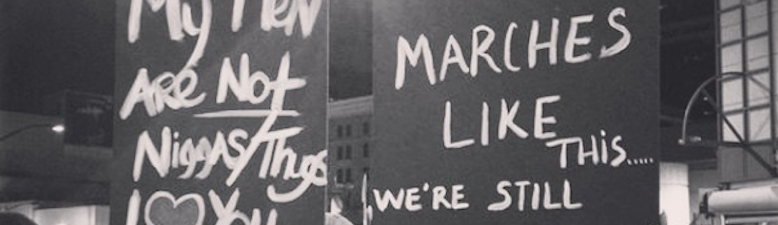 My Men
Are Not
Niggas/Thugs
I ♡ You
MARCHES
LIKE
THIS.....
WE'RE STILL